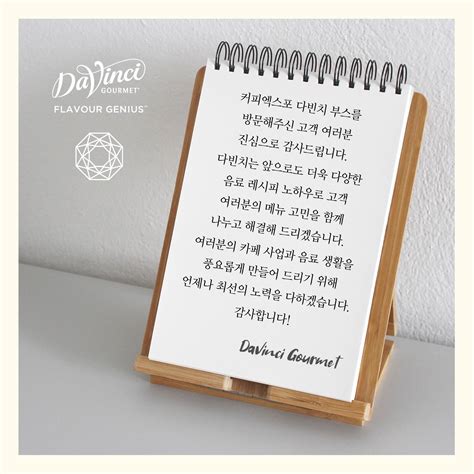 DaVinci
GOURMET
FLAVOUR GENIUS™
커피엑스포 다빈치 부스를
방문해주신 고객 여러분
진심으로 감사드립니다.
다빈치는 앞으로도 더욱 다양한
음료 레시피 노하우로 고객
여러분의 메뉴 고민을 함께
나누고 해결해 드리겠습니다.
여러분의 카페 사업과 음료 생활을
풍요롭게 만들어 드리기 위해
언제나 최선의 노력을 다하겠습니다.
감사합니다!
DaVinci Gourmet